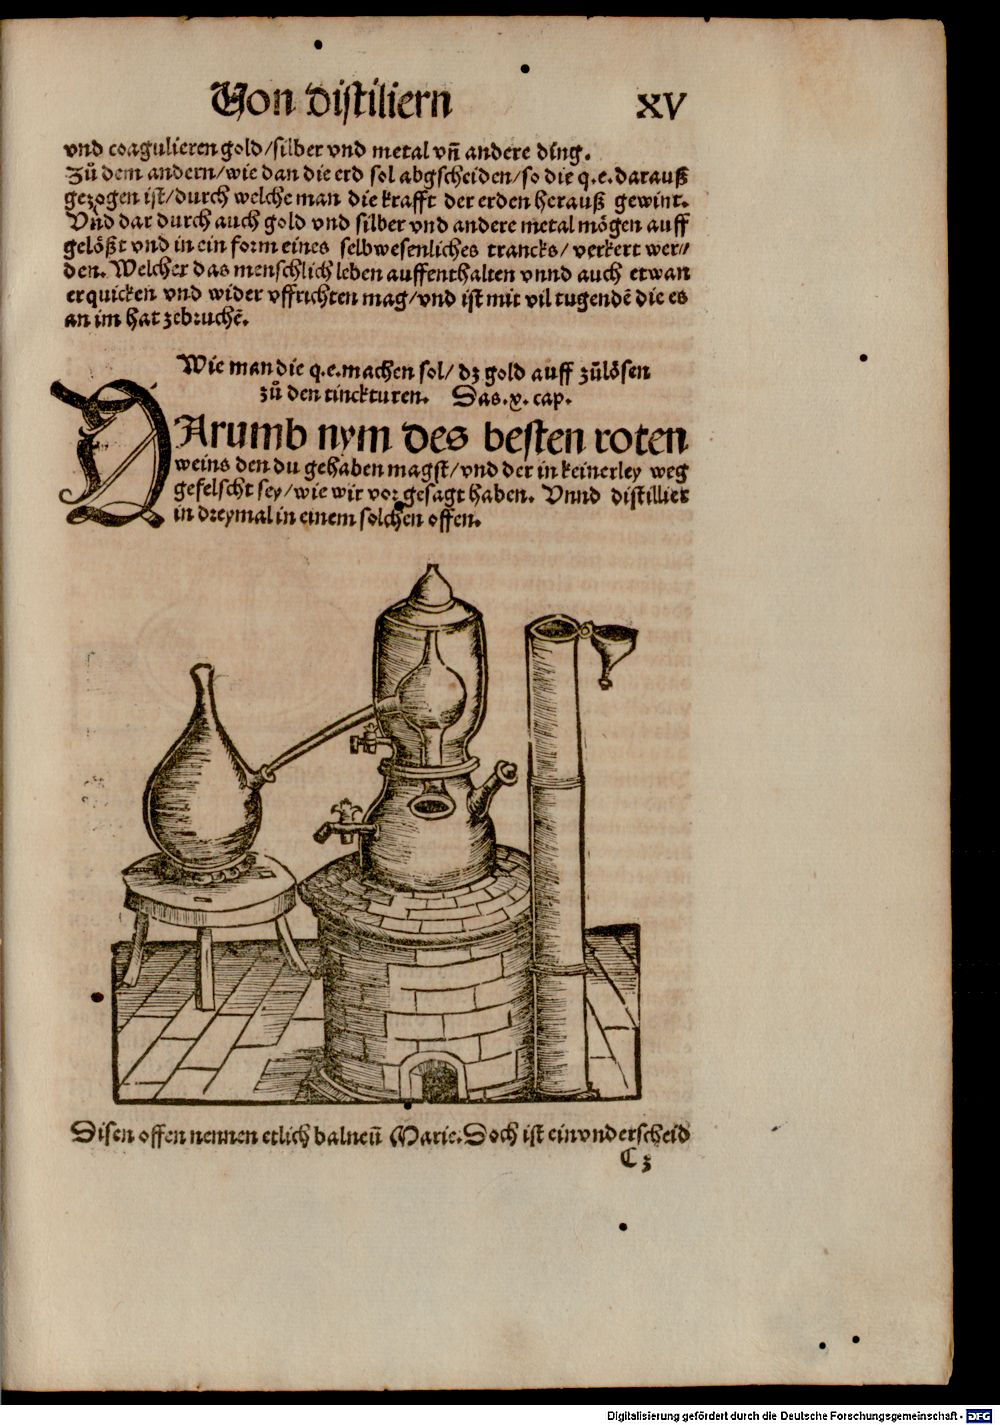 Von distiliern XV
vnd coagulieren gold/silber vnd metal vn̄ andere ding.
Zů dem andern/wie dan die erd sol abgscheiden/so die q.e.darauß
gezogen ist/durch welche man die krafft der erden herauß gewint.
Vnd dar durch auch gold vnd silber vnd andere metal mögen auff
gelößt vnd in ein form eines selbwesenliches trancks/ verkert wer//
den. Welcher das menschlich leben auffenthalten vnnd auch etwan
erquicken vnd wider vffrichten mag/vnd ist mit vil tugendē die es
an im hat zebruchē.
Wie man die q.e.machen sol/ dz gold auff zůlösen
zů den tinckturen. Das.x.cap.
DArumb nym des besten roten
weins den du gehaben magst/vnd der in keinerley weg
gefelscht sey/wie wir vor gesagt haben. Vnnd distillier
in dreymal in einem solchen offen.
Disen offen nennen etlich balneū Marie.Doch ist ein vnderscheid
C 3
Digitalisierung gefördert durch die Deutsche Forschungsgemeinschaft - DFG